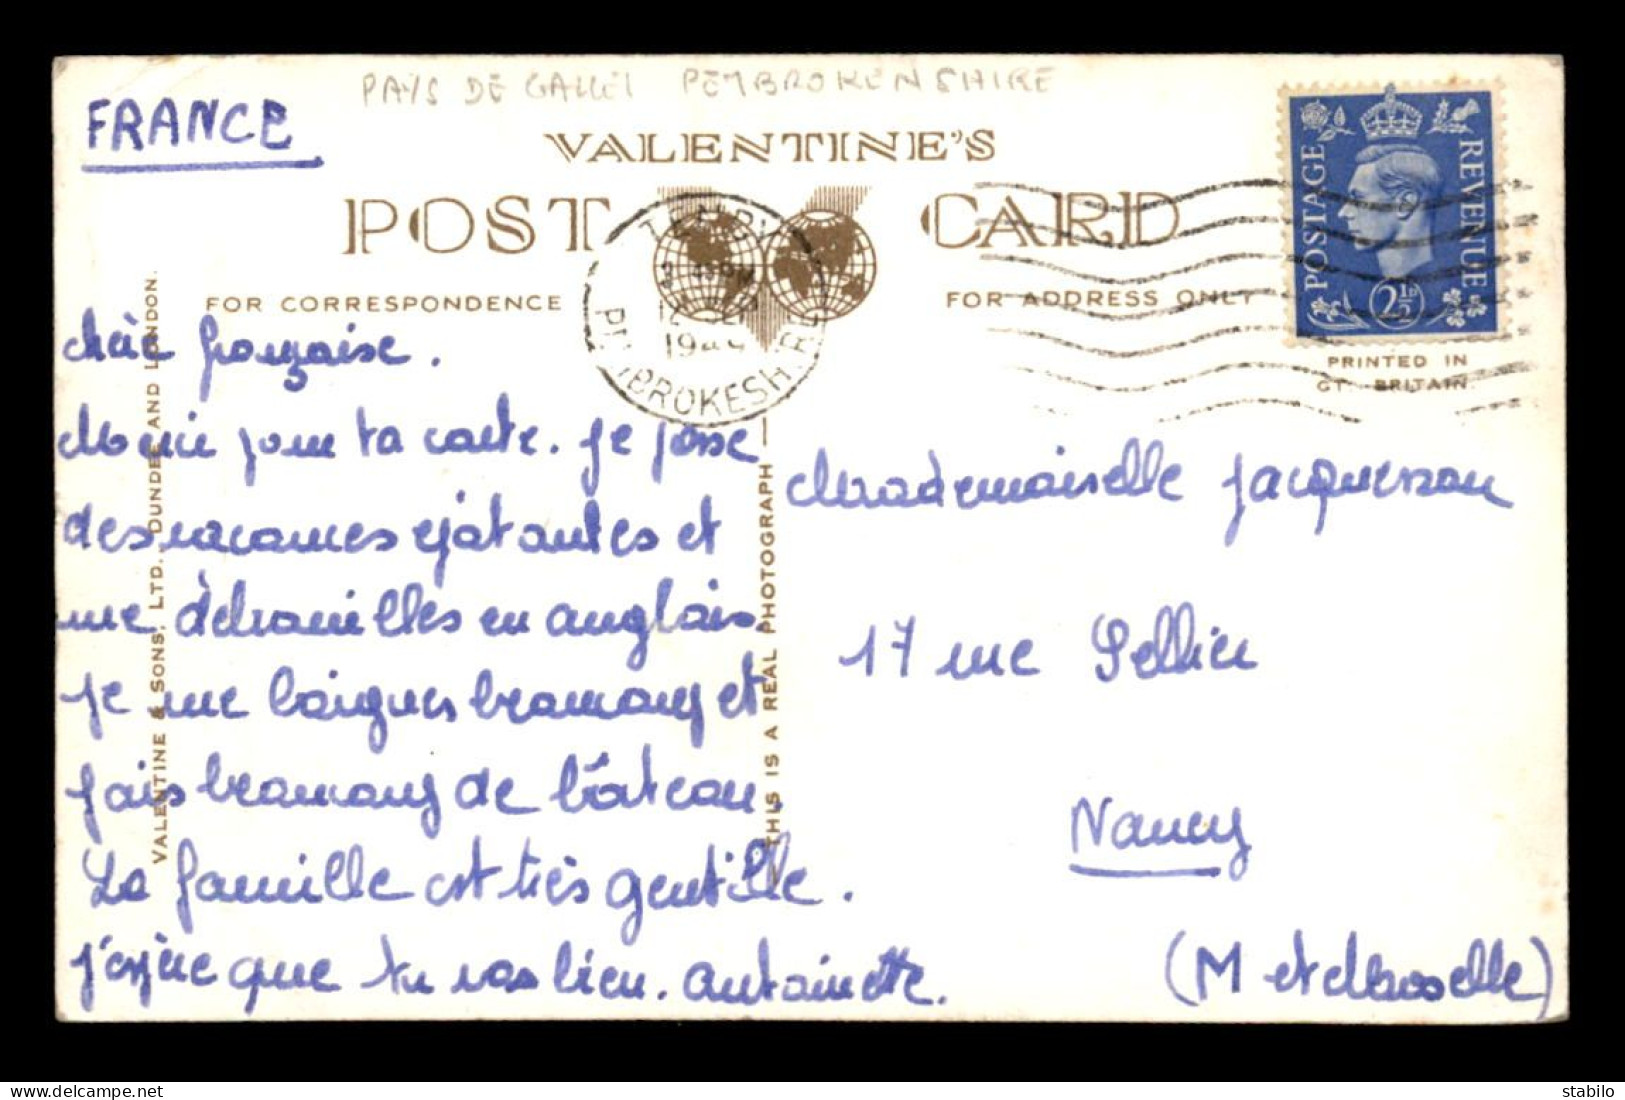 PAYS DE GALLES PEMBROKENSHIRE
FRANCE
VALENTINE'S
POST CARD
FOR CORRESPONDENCE
FOR ADDRESS ONLY
TENBY
12 SEP
PEMBROKESHIRE
POSTAGE REVENUE
2½D
PRINTED IN
GT. BRITAIN.
VALENTINE & SONS, LTD., DUNDEE AND LONDON.
THIS IS A REAL PHOTOGRAPH
chère françoise.
Merci pour ta carte. je passe
des vacances épatantes et
me débrouilles en anglais.
je me baignes beaucoup et
fais beaucoup de bâteau.
La famille est très gentille.
j'espère que tu vas bien. antoinette.
Mademoiselle Jacquesson
17 rue Sellier
Nancy
(M et Moselle)
stabilo
https://www.delcampe.net